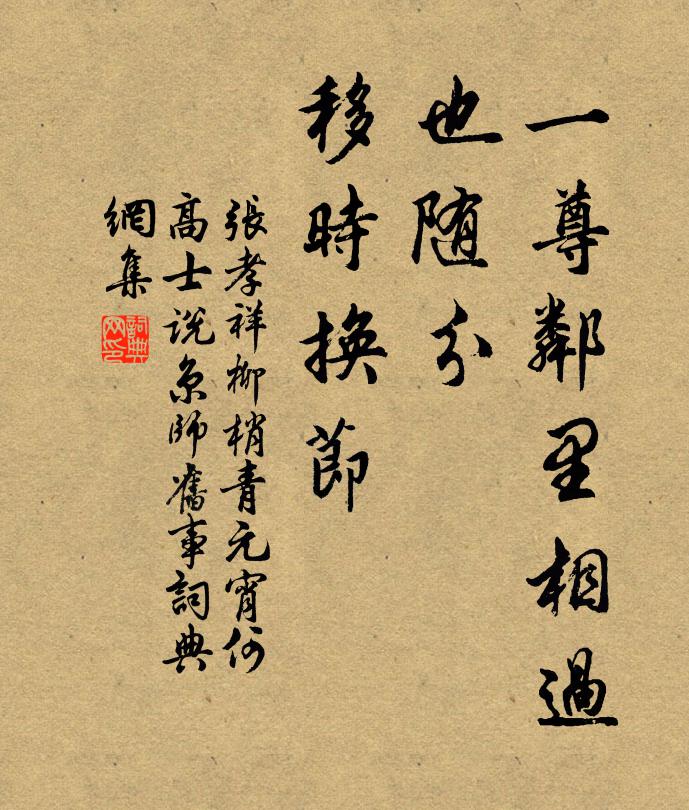 一尊鄰里相過
也隨分
移時換節
張孝祥柳梢青元宵何
高士說京師舊事詞典
網集
詞典網印